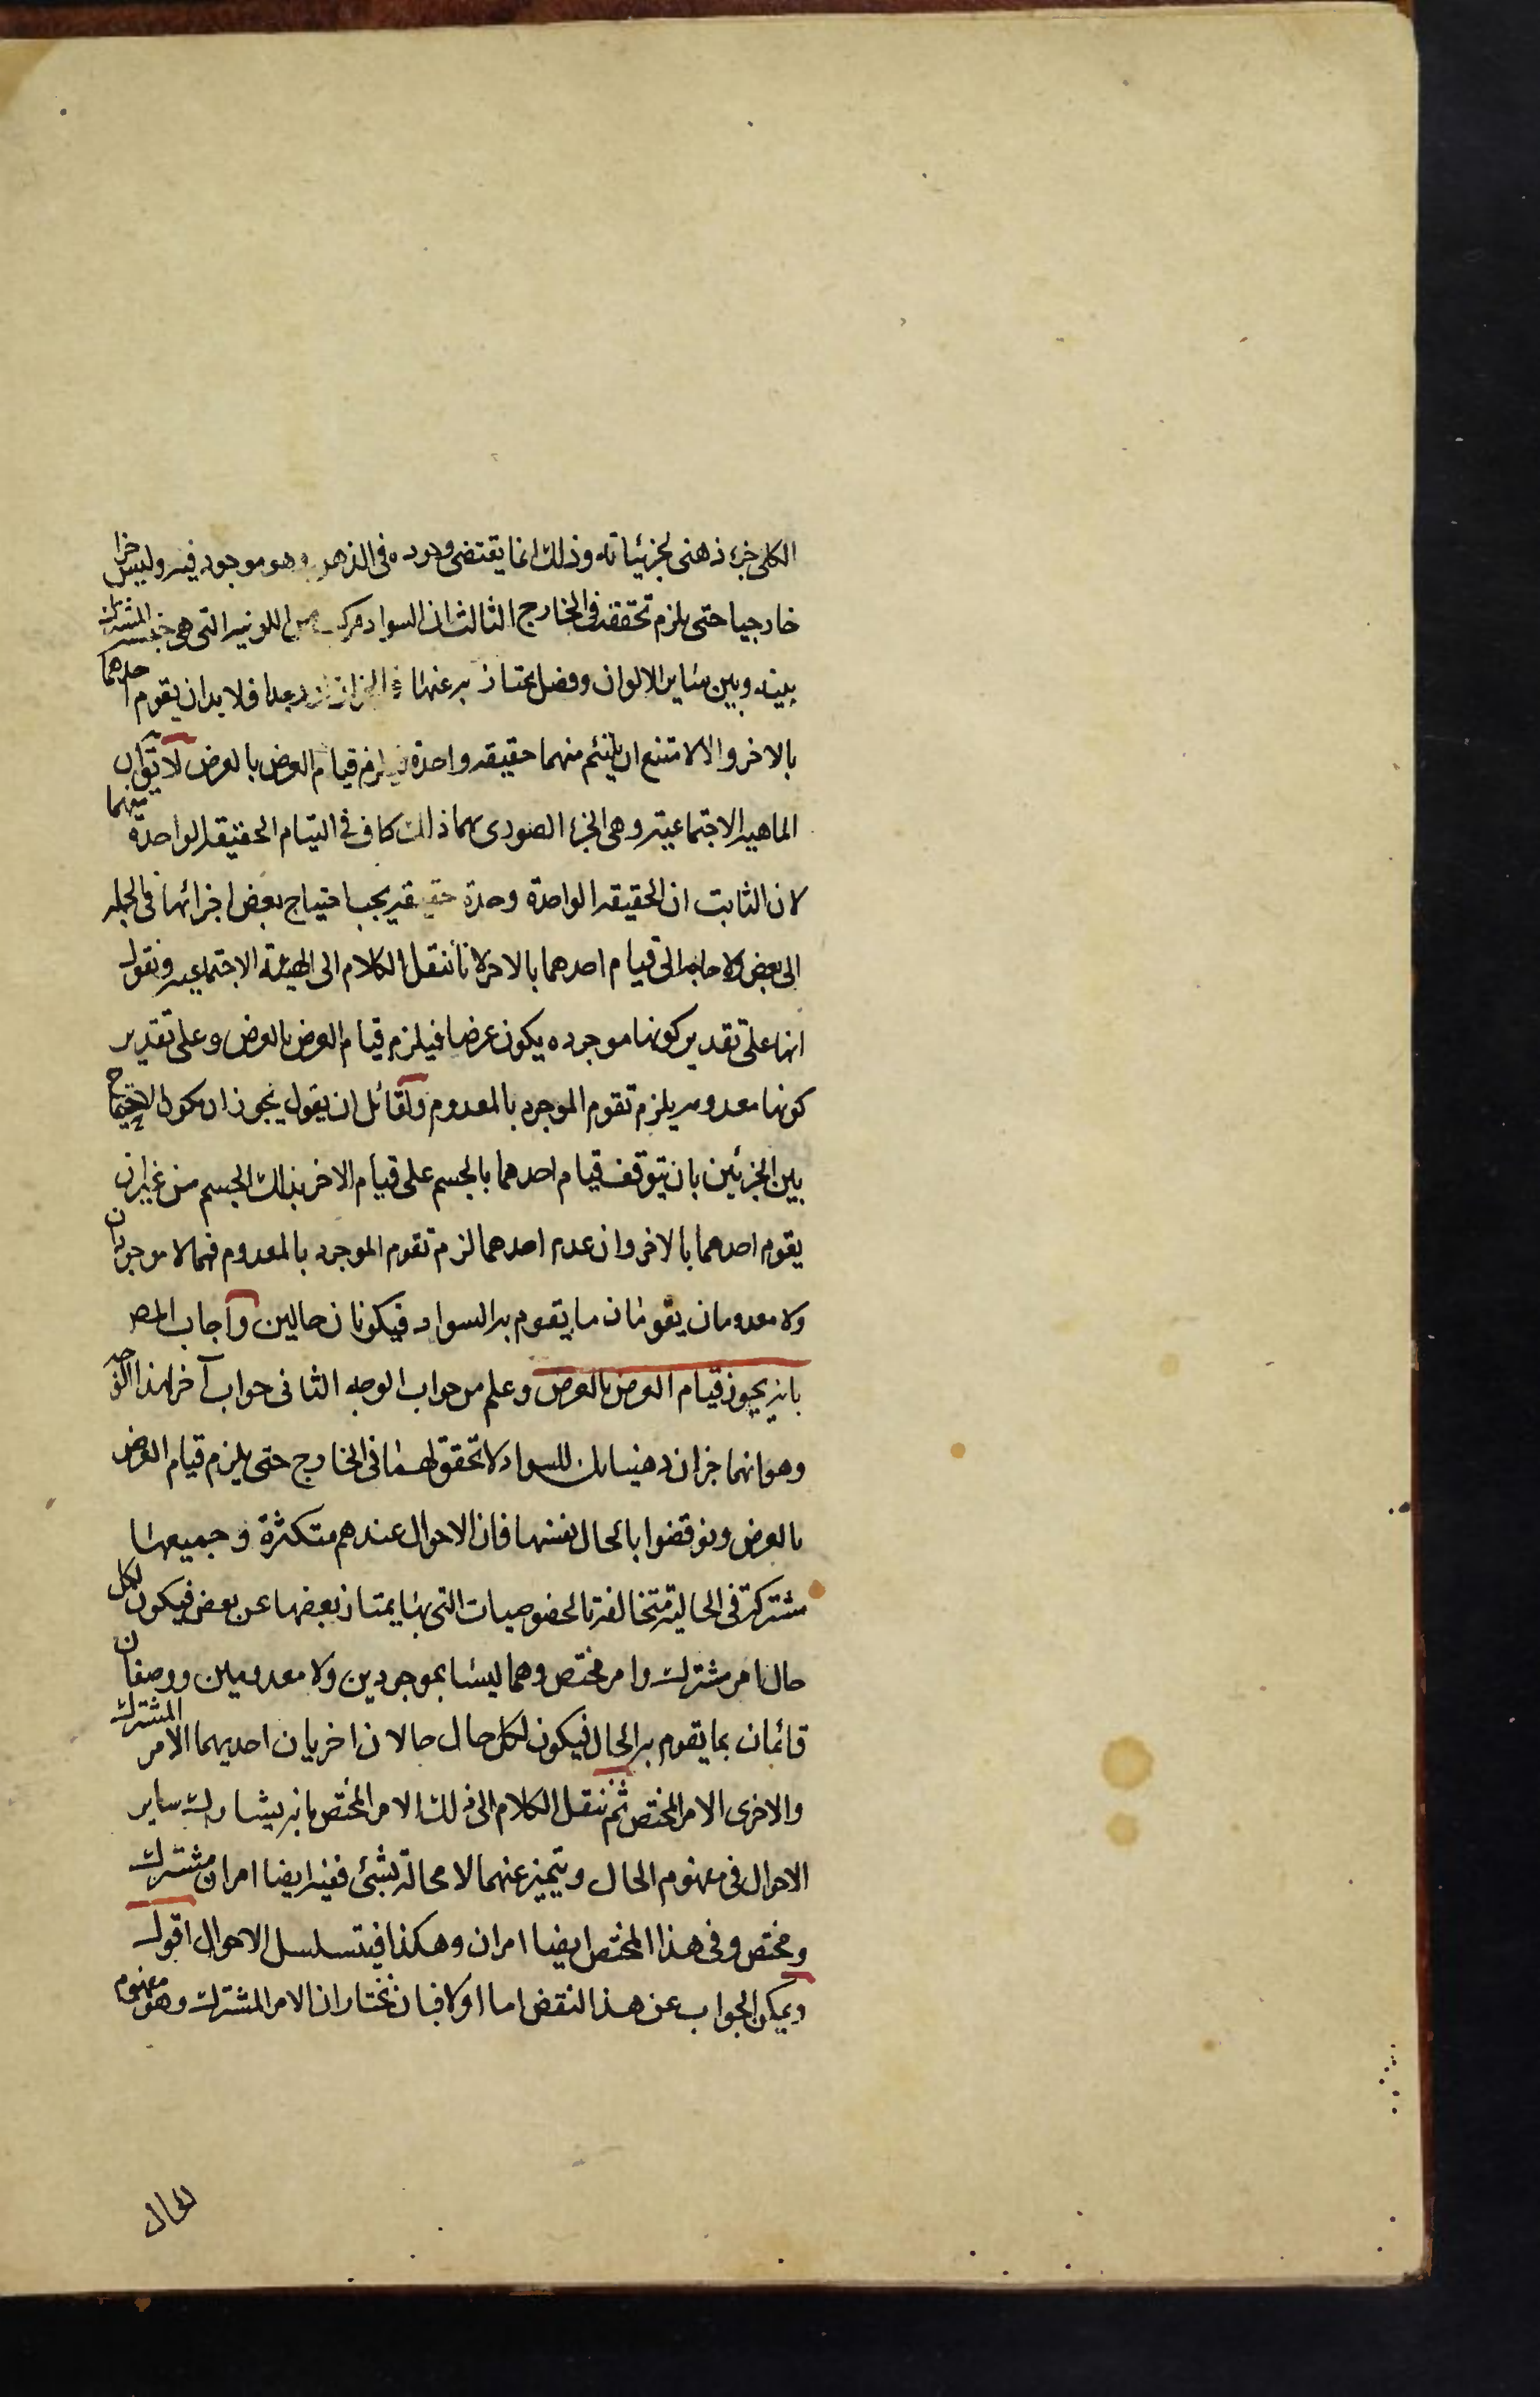 الكلى جزء ذهنى لجزئياته وذلك انما يقتضى وجوده فى الذهن وهو موجود فيه وليس جزا
خارجيا حتى يلزم تحققه فى الخارج الثالث ان السواد مركب من اللونية التى هى جنس المشترك
بينه وبين ساير الالوان وفصل يمتاز به عنها فلا بد ان يقوم احدهما
بالاخر والا لامتنع ان يلتئم منهما حقيقة واحدة فيلزم قيام العرض بالعرض لا يق ان
الماهية الاجتماعية وهى الجزء الصورى كاف فى التيام الحقيقة الواحدة منهما
لان الثابت ان الحقيقة الواحدة وحدة حقيقية يجب احتياج بعض اجزائها فى الجملة
الى بعض ولا حاجة الى قيام احدهما بالاخر لانا ننقل الكلام الى الهيئة الاجتماعية ونقول
انها على تقدير كونها موجوده يكون عرضا فيلزم قيام العرض بالعرض وعلى تقدير
كونها معدومه يلزم تقوم الموجود بالمعدوم ولقائل ان يقول يجوز ان يكون الاحتياج
بين الجزئين بان يتوقف قيام احدهما بالجسم على قيام الاخر بذلك الجسم من غير ان
يقوم احدهما بالاخر وان عدم احدهما لزم تقوم الموجود بالمعدوم فهما لا موجودان
ولا معدومان يقومان ما يقوم به السواد فيكونان حالين واجاب المص
بانه يجوز قيام العرض بالعرض وعلم من جواب الوجه الثانى جواب آخر لهذا الوجه
وهو انهما جزان ذهنيان للسواد لا تحقق لهما فى الخارج حتى يلزم قيام العرض
بالعرض ونوقضوا بالحال نفسها فان الاحوال عندهم متكثرة وجميعها
مشتركة فى الحالية متخالفة بالخصوصيات التى بها يمتاز بعضها عن بعض فيكون لكل
حال امر مشترك وامر مختص وهما ليسا بموجودين ولا معدومين ووصفان
قائمان بما يقوم به الحال فيكون لكل حال حالان اخريان احديهما الامر المشترك
والاخرى الامر المختص ثم ننقل الكلام الى ذلك الامر المختص بانه يشارك ساير
الاحوال فى مفهوم الحال ويتميز عنهما لا محالة بشئ ففيه ايضا امران مشترك
ومختص وفى هذا المختص ايضا امران وهكذا فيتسلسل الاحوال اقول
ويمكن الجواب عن هذا النقض اما اولا فبان نختار ان الامر المشترك وهو مفهوم
الحال